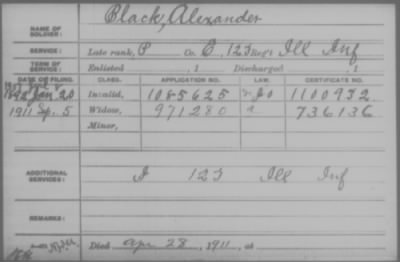 NAME OF SOLDIER: Black, Alexander
SERVICE: Late rank, P Co. E, 123 Reg't Ill Inf
TERM OF SERVICE: Enlisted , 1 Discharged , 1
DATE OF FILING. CLASS. APPLICATION NO. LAW. CERTIFICATE NO.
1892 Jan 20 Invalid, 1085625 1100932
1911 Sep. 5 Widow, 971280 a 736136
Minor,
ADDITIONAL SERVICES: A 123 Ill Inf
REMARKS:
Died Apr 28, 1911, at